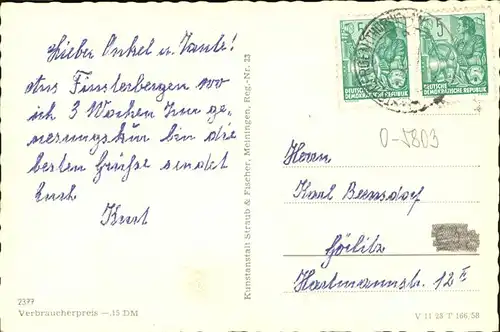 Lieber Onkel u. Tante!
Aus Finsterbergen wo
ich 3 Wochen zur ge-
nesungskür bin die
besten Grüße sendet
Euch
Kurt
2377
Verbraucherpreis —.15 DM
Kunstanstalt Straub & Fischer, Meiningen, Reg.-Nr. 23
5
DEUTSCHE
DEMOKRATISCHE REPUBLIK
5
DEUTSCHE
DEMOKRATISCHE REPUBLIK
O-5803
Herrn
Karl Bernsdorf
Görlitz
Hartmannstr. 12 II
V 11 28 T 166/58